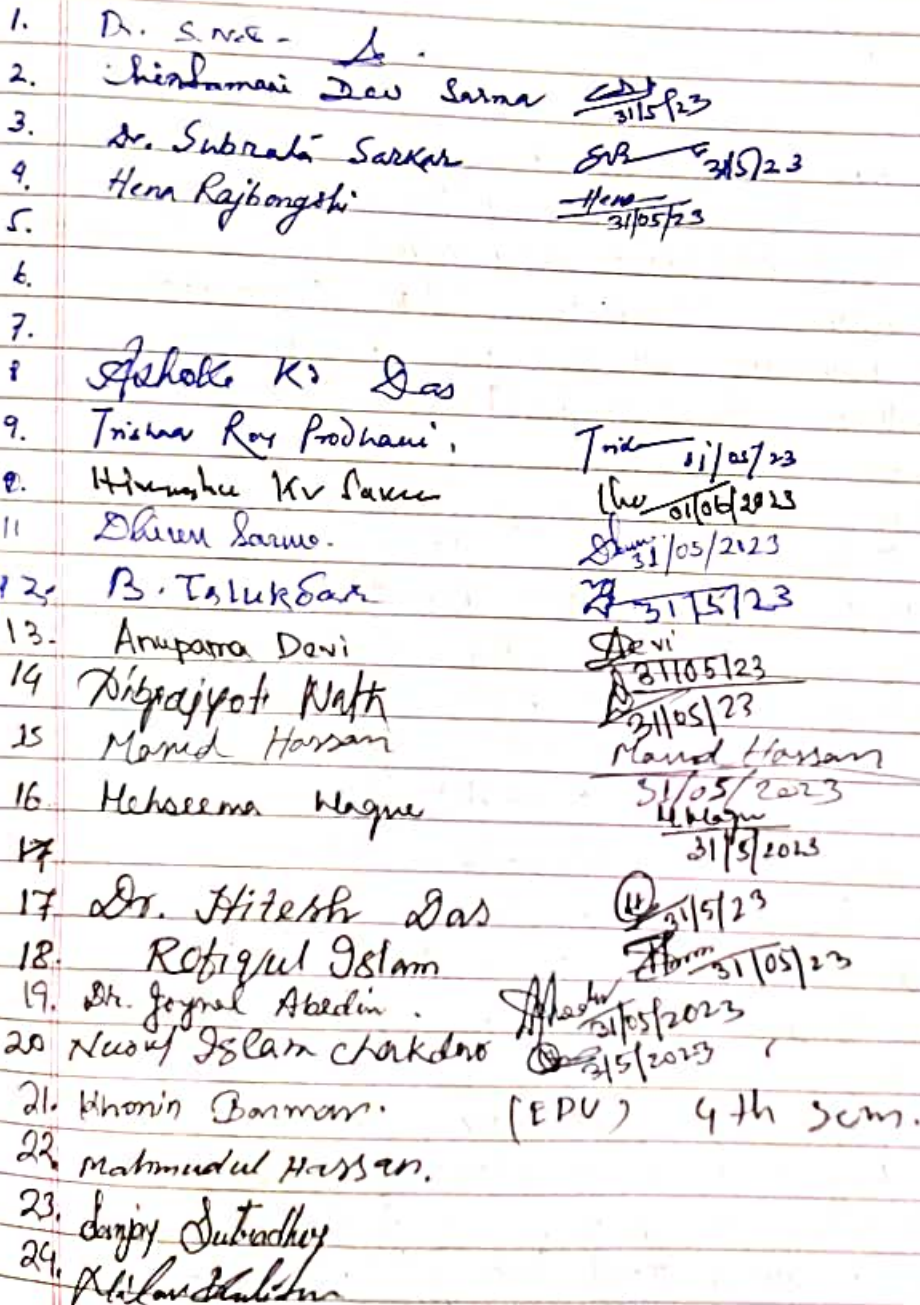 1. Dr. S.
2. Dev Sarma 31/5/23
3. Dr. Subrata Sarkar 31/5/23
4. Hena Rajbongshi Hena 31/05/23
5.
6.
7.
8 Ashok Kr Das
9. Trishna Roy Prodhani, 31/05/23
Kr 01/06/2023
11 Dhiren Sarma. 31/05/2023
12. B. Talukdar 31/5/23
13. Anupama Devi Devi 31/05/23
14 Dibyajyoti Nath 31/05/23
15 Hassan Hassan 31/05/2023
16 Mehseema Haque 31/5/2023
17
17 Dr. Hitesh Das 31/5/23
18. Rofiqul Islam 31/05/23
19. Dr. Joynal Abedin. 31/05/2023
20 Islam 31/5/2023
21. Khonin Barman. (EDU) 4th Sem.
22. Mahmudul Hassan.
23. Sanjay Sutradhar
24.